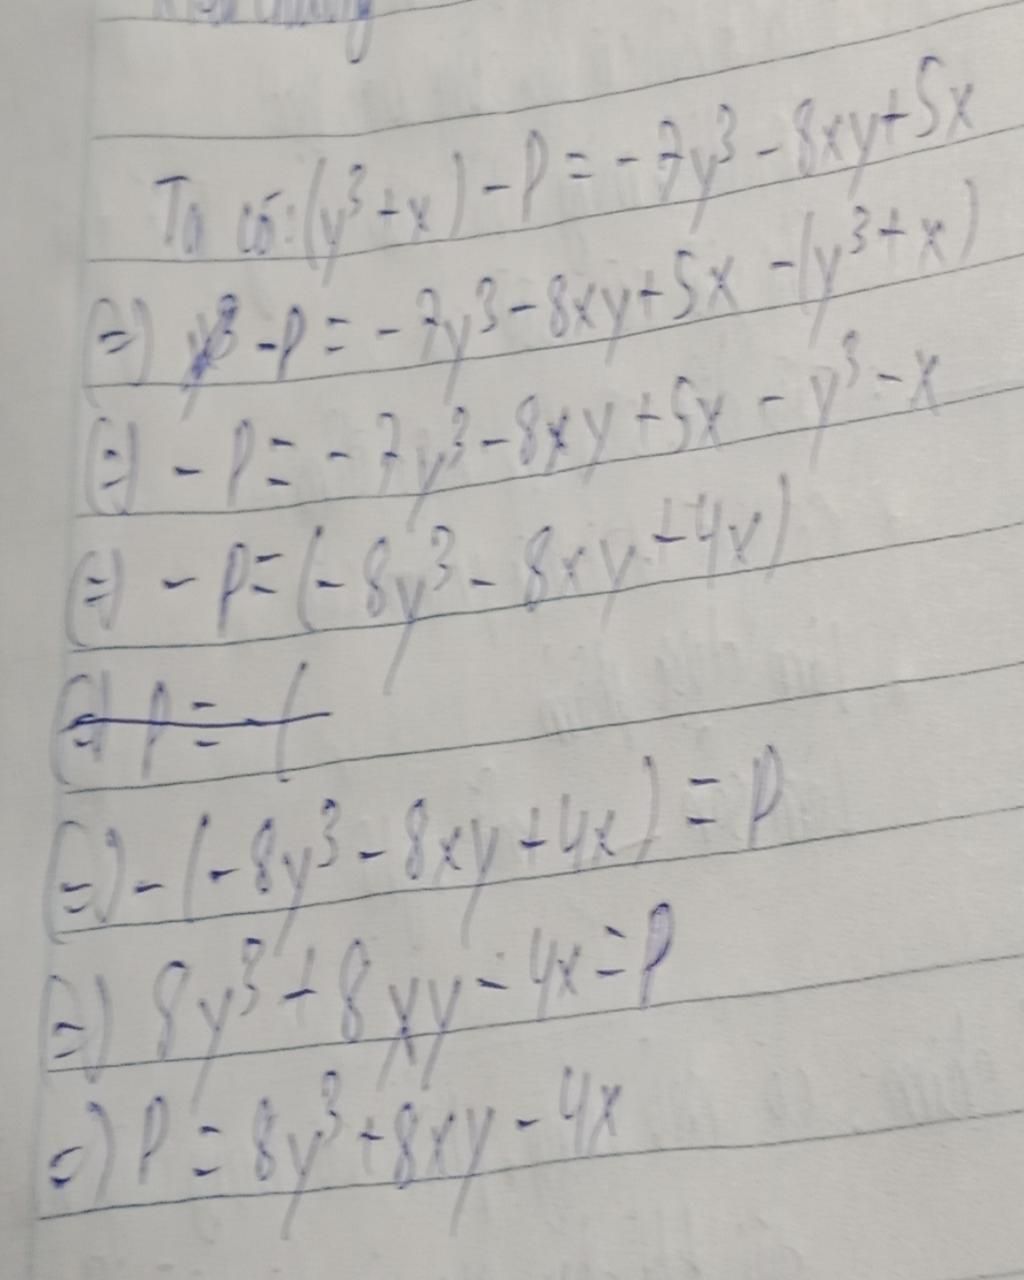 Ta có: (y³ + x) - P = - 7y³ - 8xy + 5x
⇒ y³ - P = - 7y³ - 8xy + 5x - (y³ + x)
⇒ - P = - 7y³ - 8xy + 5x - y³ - x
⇒ - P = (- 8y³ - 8xy + 4x)
⇒ P = - (
⇒ - (- 8y³ - 8xy + 4x) = P
⇒ 8y³ + 8xy - 4x = P
⇒ P = 8y³ + 8xy - 4x